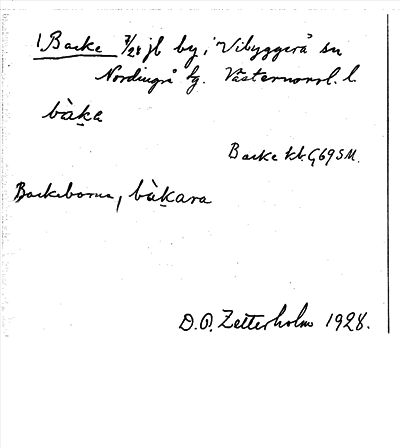 1 Backe 7/28 jb by i Vibyggerå sn
Nordingrå tg. Västernorrl. l.
bàka
Backe kb. G69SM.
Backeborna, bàkara
D.O. Zetterholm 1928.